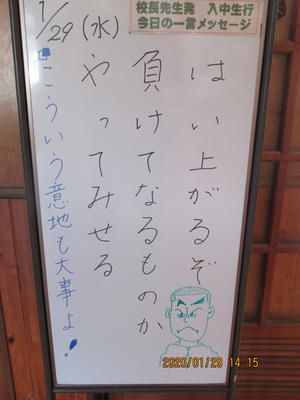 校長先生発　入中生行
今日の一言メッセージ
1/29(水)
はい上がるぞ
負けてなるものか
やってみせる
こういう意地も大事よ!
2020/01/29 14:15